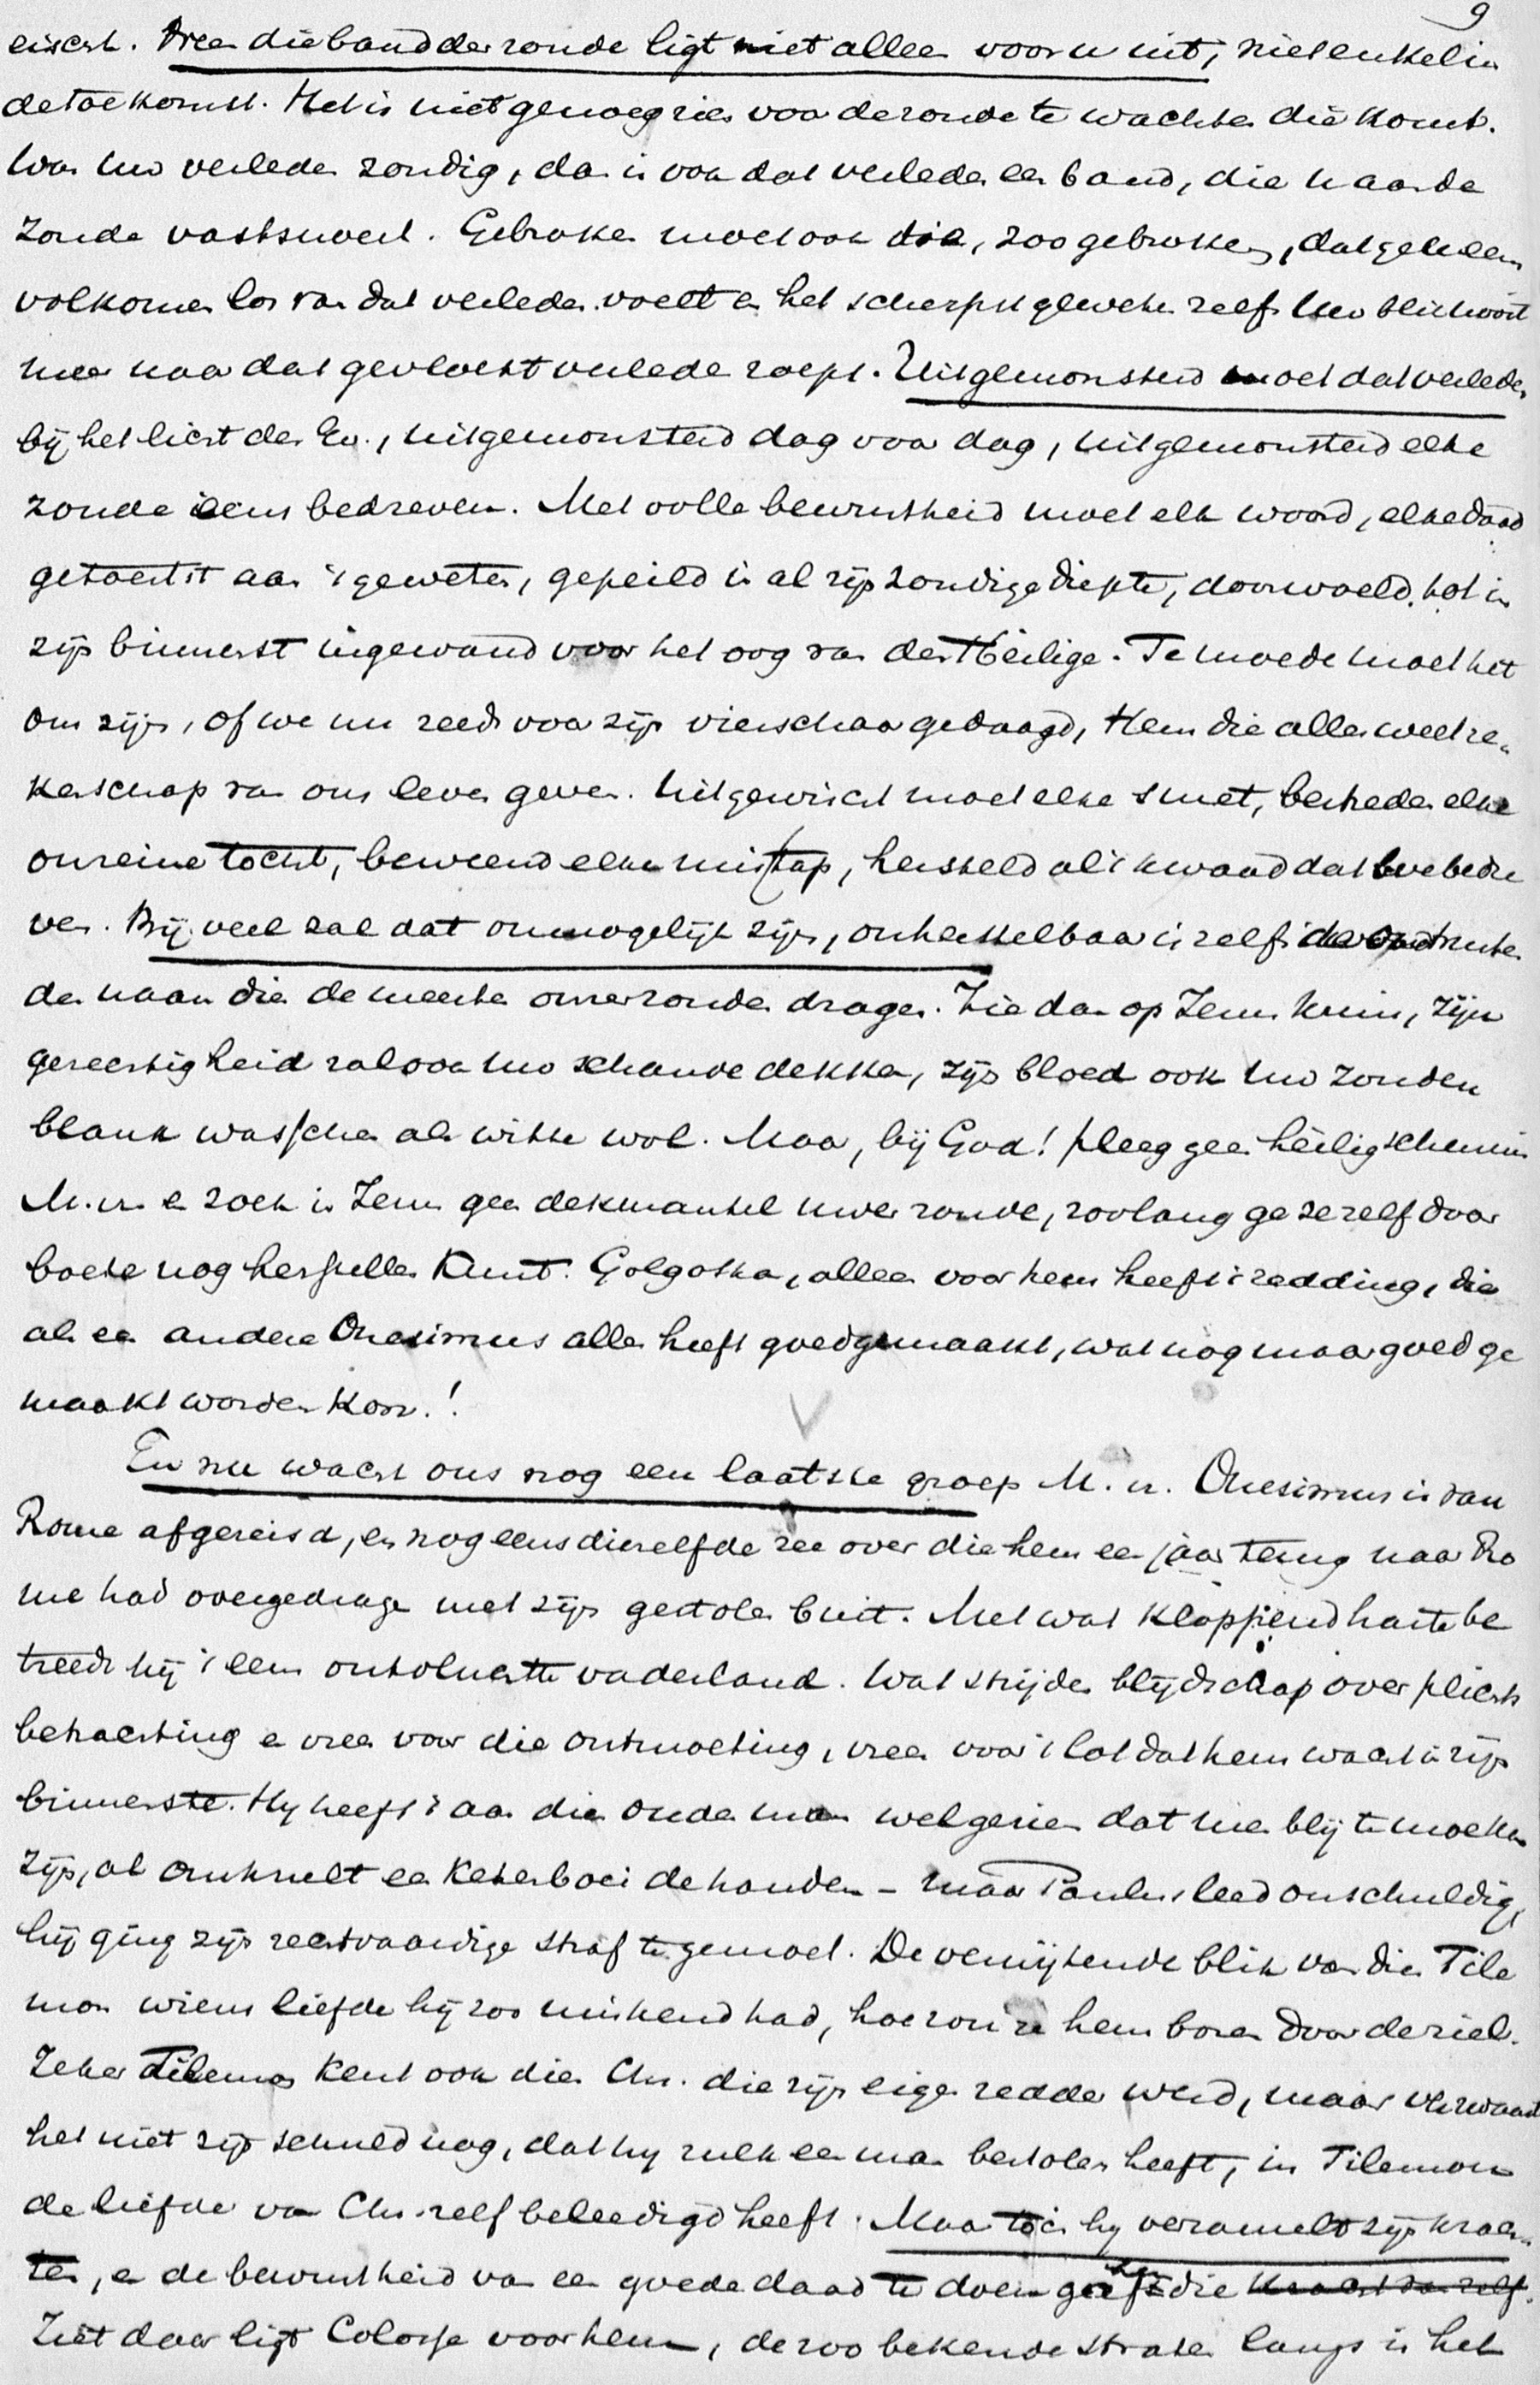 9
eischt. Neen die band der zonde ligt niet alleen voor u uit, niet enkel in
de toekomst. Het is niet genoeg zich voor de zonde te wachten die komt.
Was uw verleden zondig, dan is ook dat verleden een band, die u aan de
zonde vastsnoert. Gebroken moet ook die, zoo gebroken, dat ge u een
volkomen los van dat verleden voelt en het scherpst geweten zelfs uw blik nooit
meer naar dat gevloekt verleden roept. Uitgemonsterd moet dat verleden
bij het licht des Ev., uitgemonsterd dag voor dag, uitgemonsterd elke
zonde eens bedreven. Met volle bewustheid moet elk woord, elke daad
getoetst aan 's geweten, gepeild in al zijn zondige diepte, doorwoeld tot in
zijn binnenst ingewand voor het oog van den Heilige. Te moede moet het
ons zijn, of we nu reeds voor zijn vierschaar gedaagd, Hem die alles weet re-
kenschap van ons leven geven. Uitgewischt moet elke smet, bestreden elke
onreine tocht, beweend elke misstap, hersteld al 't kwaad dat we bedre
ven. Bij veel zal dat onmogelijk zijn, onherstelbaar is zelfs
den naam die de meeste onzer zonden dragen. Zie dan op Jezus kruis, zijn
gerechtigheid zal ook uw schande dekken, zijn bloed ook uw zonden
blank wasschen als witte wol. Maar, bij God! pleeg geen heiligschennis
M. vr. en zoek in Jezus geen dekmantel uwer zonde, zoolang ge ze zelf door
boete nog herstellen kunt. Golgotha, alleen voor hem heeft 't redding, die
als een andere Onesimus alles heeft goedgemaakt, wat nog maar goed ge
maakt worden kon!
En nu wacht ons nog een laatste groep M. vr. Onesimus is van
Rome afgereisd, en nog eens diezelfde zee over die hem een jaar terug naar Ro
me had overgedragen met zijn gestolen buit. Met wat kloppend harte be
treedt hij 't eens ontvluchtte vaderland. Wat strijden blijdschap over plichts
betrachting en vrees voor die ontmoeting, vrees voor 't lot dat hem wacht in zijn
binnenste. Hy heeft 't aan dien ouden man wel gezien dat hier blij te moede
zijn, al omknelt een ketenboei de handen - maar Paulus leed onschuldig,
hij ging zijn rechtvaardige straf te gemoet. De verwijtende blik van dien File
mon wiens liefde hij zoo miskend had, hoe zou ze hem boren door de ziel.
Zeker Filemon kent ook dien Chr. die zijn eigen redder werd, maar verzwaart
het niet zijn schuld nog, dat hy zulk een man bestolen heeft, in Filemon
de liefde van Chr. zelf beleedigd heeft. Maar toch hy verzamelt zijn krach-
ten, en de bewustheid van een goede daad te doen geeft die kracht van zelf.
Ziet daar ligt Colosse voor hem, de zoo bekende straten langs is het